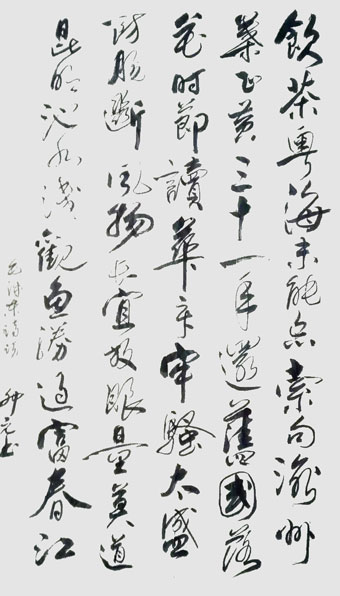 飲茶粵海未能忘索句渝州
葉正黃三十一年還舊國落
花時節讀華章牢騷太盛
防腸斷風物長宜放眼量莫道
昆明池水淺觀魚勝過富春江